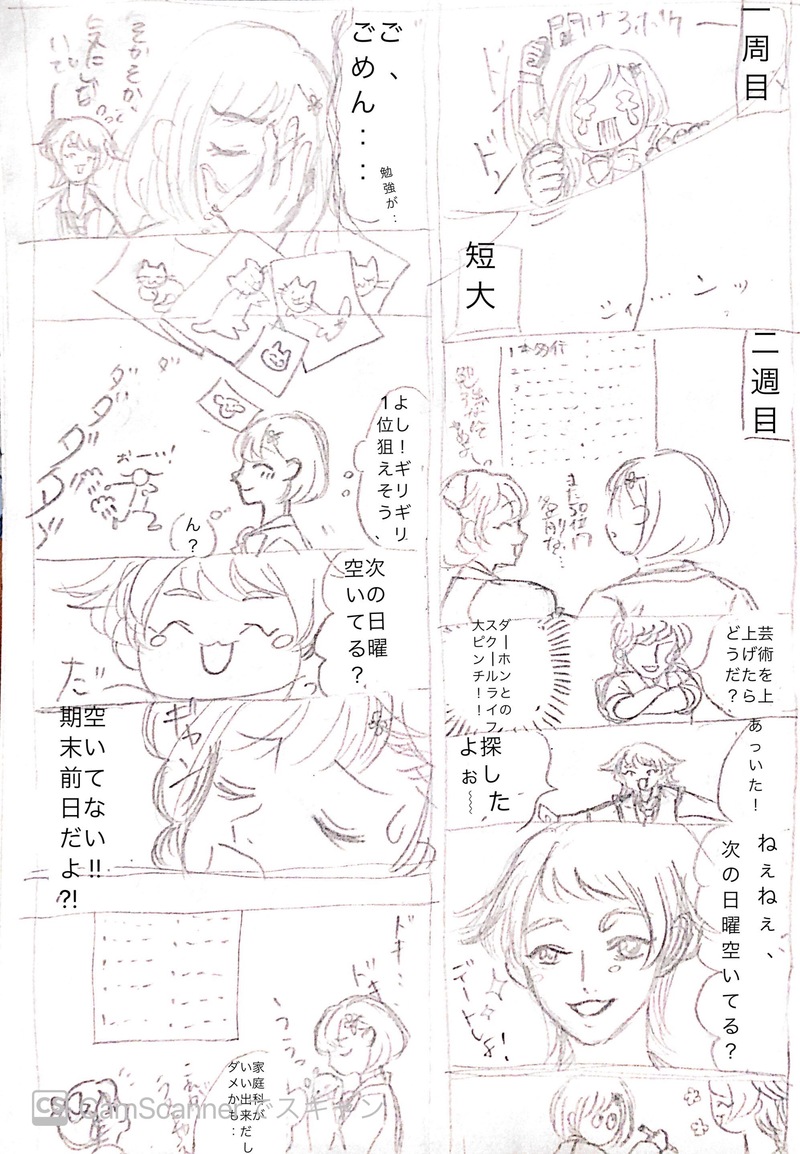 一周目
開けろボケーー
ドン
ドン
短大
シィ…ンッ
二週目
また50位内
名前な…
芸術を上
上げたら
どうだ？
ダーホンとの
スクールライフ
大ピンチ！！
あっいた！
探した
よぉ〰
ねぇねぇ、
次の日曜空いてる？
デートしよ！
ご、
ごめん‥‥
勉強が‥
そかそか、
気にしないで
よし！ギリギリ
1位狙えそう
ダダ
ダダダダ
おーい！
ん？
次の日曜
空いてる？
だー
ギャン
空いてない!!
期末前日だよ?!
ドキ…
ドキ…
家庭科が
いい出来だし
ダメかも‥
CS CamScannerでスキャン